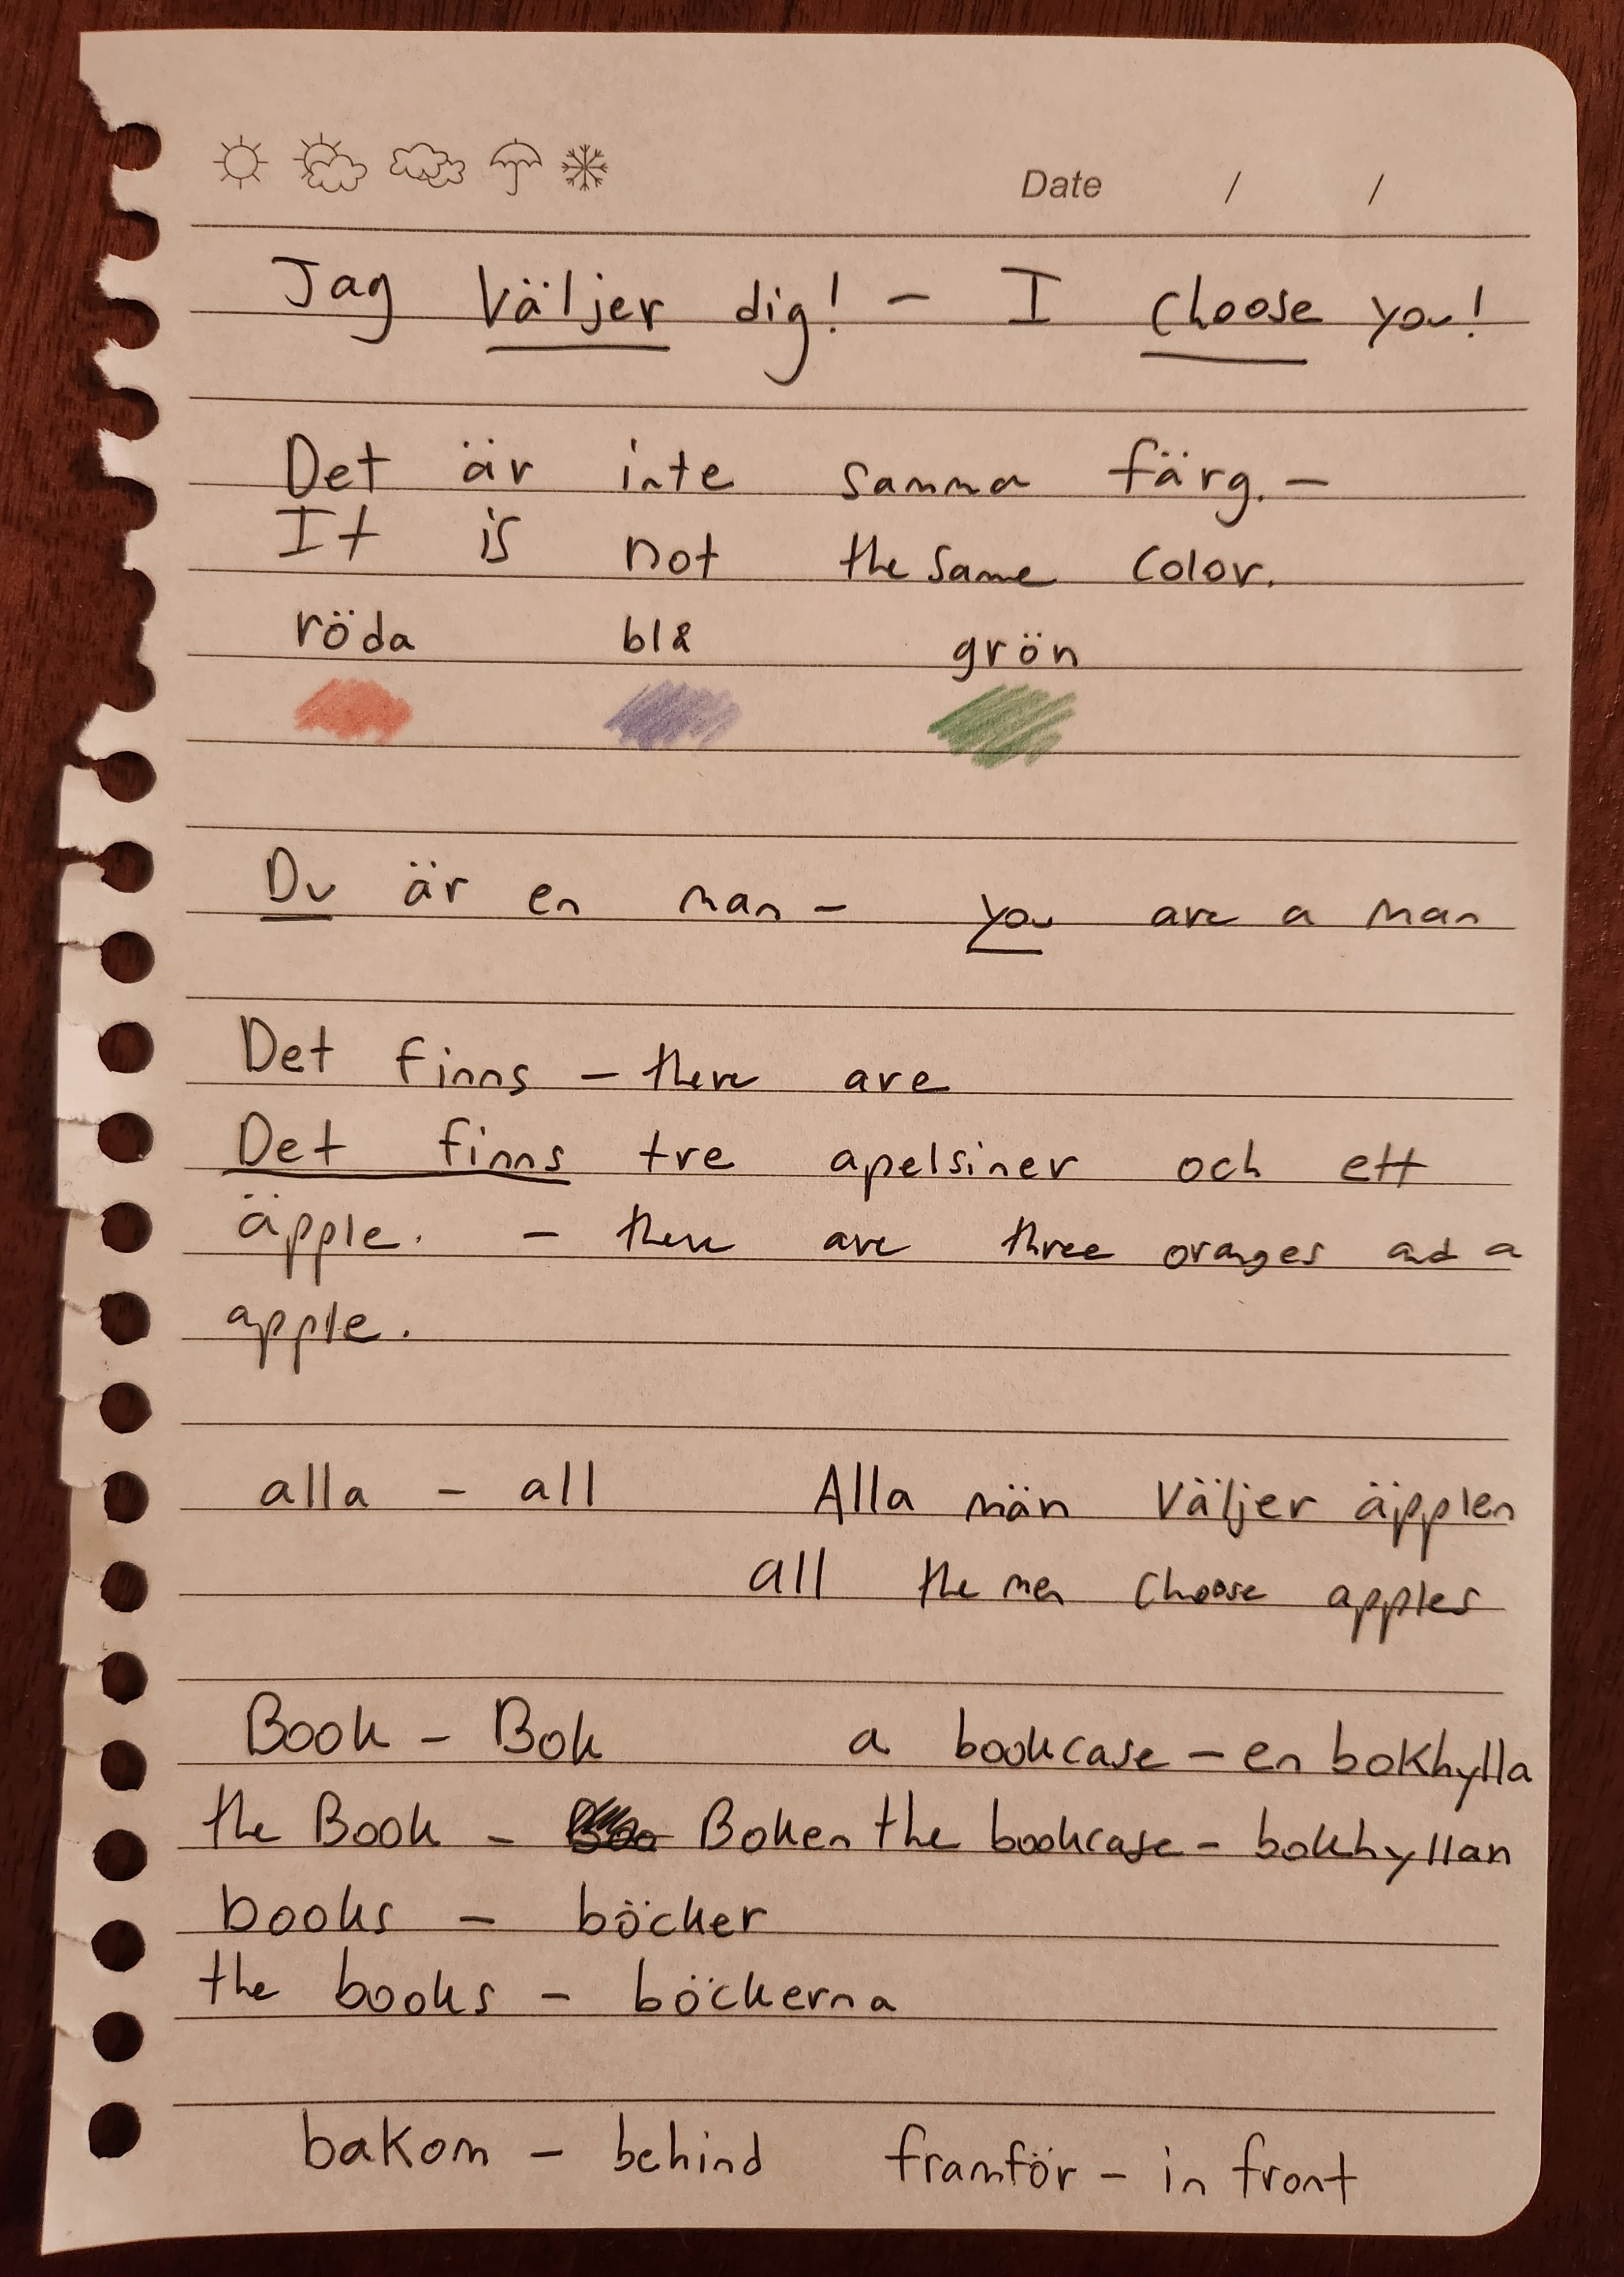 Date / /
Jag väljer dig! – I choose you!
Det är inte samma färg. –
It is not the same color.
röda blå grön
Du är en man – you are a man
Det finns – there are
Det finns tre apelsiner och ett
äpple. – there are three oranges and a
apple.
alla – all Alla män väljer äpplen
all the men choose apples
Book – Bok a bookcase – en bokhylla
the Book – Boken the bookcase – bokhyllan
books – böcker
the books – böckerna
bakom – behind framför – in front